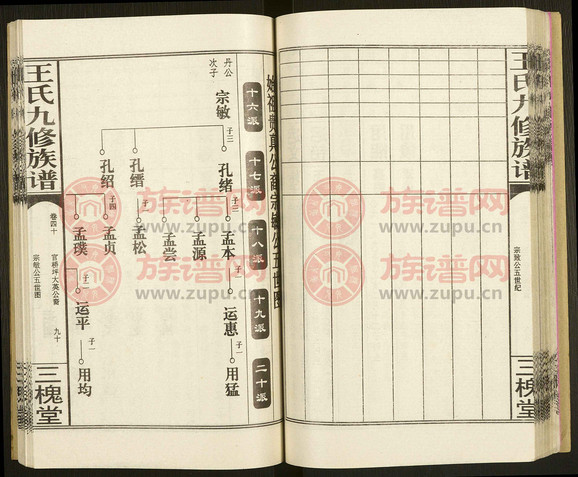 王氏九修族谱
宗致公五世纪
三槐堂
始祖贵真公裔宗敏公五世图
十六派
十七派
十八派
十九派
二十派
丹公
次子
宗敏
子三
孔绪
子三
孟本
子一
运惠
子一
用猛
孟源
孟尝
孔缙
子一
孟松
孔绍
子四
孟贞
孟璞
子一
运平
子一
用均
王氏九修族谱
卷四十
官桥坪大英公裔
宗敏公五世图
九十
三槐堂
族谱网
www.zupu.cn
族谱网
www.zupu.cn
族谱网
www.zupu.cn
族谱网
www.zupu.cn